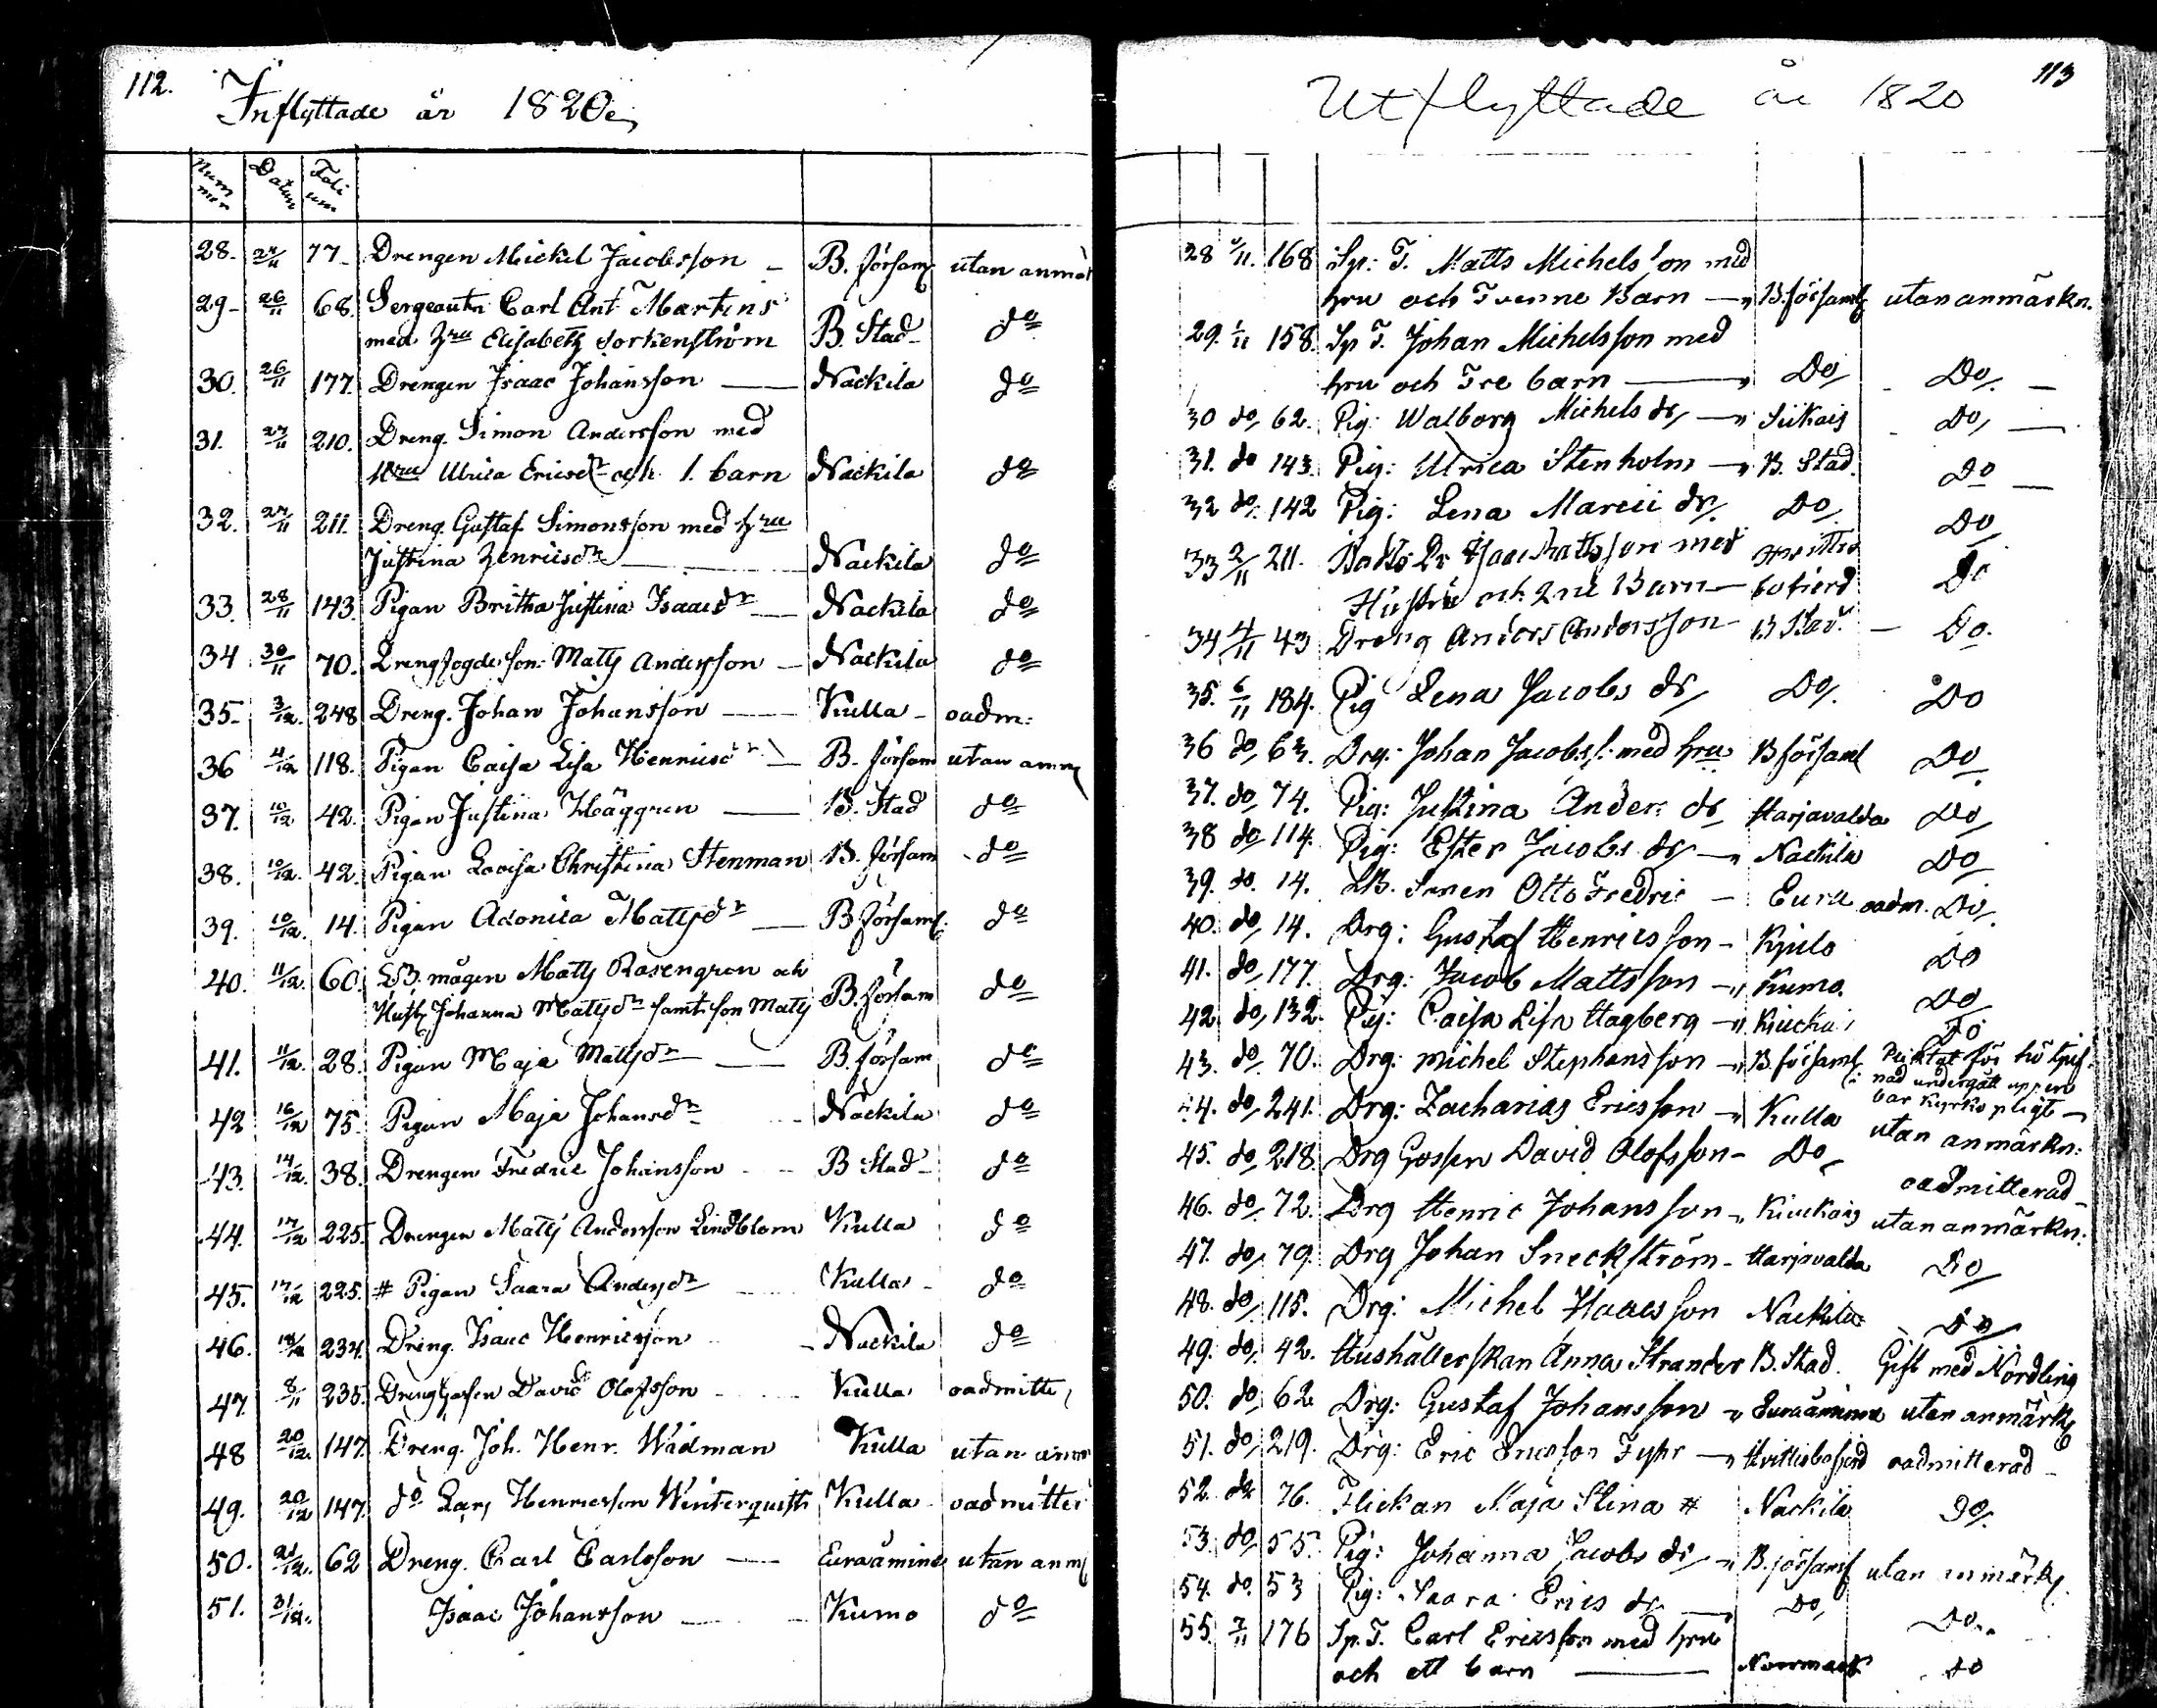 112.
Inflyttade år 1820
Num mer Datum Foli um
28. 24/11 77 Drengen Mickel Jacobsson – B. församl utan anmär
29 26/11 68. Sergeantn Carl Ant Martins
med Hru Elisabeth B. Stad do
30. 26/11 177. Drengen Isaac Johansson — Nackila do
31. 27/11 210. Dreng. Simon Andersson med
Hru Ulrica Ericsdr och 1. barn Nackila do
32. 27/11 211. Dreng. Gustaf Simonsson med hru
Justina Henricsdr — Nackila do
33. 28/11 143. Pigan Britha Justina Isaacsdr — Nackila do
34 30/11 70. Drengfogde son: Matts Andersson – Nackila do
35. 3/12. 248 Dreng. Johan Johansson — Kulla – oadm:
36 4/12 118. Pigan Caisa Lisa Henricsdr — B. försam utan anm
37. 10/12 42. Pigan Justina Häggren — B. Stad do
38. 10/12. 42. Pigan Lovisa Christina Stenman B. försam – do
39. 10/12. 14. Pigan Adonica Mattsdr — B församl. do
40. 11/12. 60. LB. mågen Matts Rosengren och
Hustr Johanna Mattsdr samt son Matts B. försam do
41. 11/12. 28. Pigan Maja Mattsdr — B. försam do
42 16/12 75. Pigan Maja Johansdr Nackila do
43. 14/12. 38. Drengen Fredric Johansson B Stad – do
44. 17/12 225. Drengen Matts Andersson Lindblom Kulla do
45. 17/12 225. # Pigan Saara Andersdr Kulla – do
46. 18/12 234. Dreng. Isaac Henricsson – Nackila do
47. 8/11 235. Dreng gossen David Olofsson Kulla oadmitte
48 20/12. 147. Dreng. Joh. Henr. Wadman Kulla utan anm
49. 20/12 147. do Lars Henricsson Winterquist Kulla oadmitter
50. 21/12. 62 Dreng. Carl Carlsson — Euraåminne utan anm
51. 31/12. Isaac Johansson — Kumo do
113
Utflyttade år 1820
28 /11. 168 Sp: T. Matts Michelsson med
hru och Tvenne Barn — B. församl utan anmärkn.
29. 1/11 158. Sp T. Johan Michelsson med
hru och Tre barn — Do Do. —
30 do 62. Pig: Walborg Michels dr — Siikais Do —
31. do 143. Pig: Ulrica Stenholm — B. Stad. Do —
32 do. 142 Pig: Lena Marcii dr. Do. Do
33 2/11 211. Isaac Mattsson med Hvittis
Hustru och 2ne Barn – bofierd Do
34 4/11 43 Dreng Anders Andersson – B Stad. – Do.
35. 6/11 184. Pig Lena Jacobs dr Do. Do
36 do 63. Drg: Johan Jacobss: med hru B församl Do
37. do 74. Pig: Justina Anders dr Harjavalda Do
38 do 114. Pig: Ester Jacobs dr — Nackila Do
39. do. 14. LB. Sonen Otto Fredric — Eura oadm. Do
40. do 14. Drg: Gustaf Henricsson – Kjulo Do
41. do 177. Drg: Jacob Mattsson — Kumo. Do
42 do 132. Pig: Caisa Lisa Hagberg — Kiuckai Do
43. do 70. Drg: Michel Stephansson — B. församl: Pliktat för hö tjuf
nad undergått uppen
bar kyrko pligt –
44. do 241. Drg: Zacharias Ericsson — Kulla utan anmärkn:
45. do 218 Drg Gossen David Olofsson – Do oadmitterad –
46. do. 72. Drg Henric Johansson – Kiuckais utan anmärkn:
47. do 79. Drg Johan Sneckström – Harjavalda Do
48. do 115. Drg: Michel Isaacsson Nackila Do
49. do. 42. Hushållerskan Anna Strander B. Stad. Gift med Nordling
50. do 62 Drg: Gustaf Johansson – Euraåminne utan anmärk
51. do 219. Drg: Eric Ericsson — Hvittisbofierd oadmitterad –
52. do 76. Flickan Maja Stina # Nackila Do.
53. do 55. Pig: Johanna Jacobs dr — B. församl utan anmärk.
54. do. 53 Pig: Saara Erics dr — Do Do.
55. 7/11 176 Sp. T. Carl Ericsson med hru
och ett barn — Norrmark Do